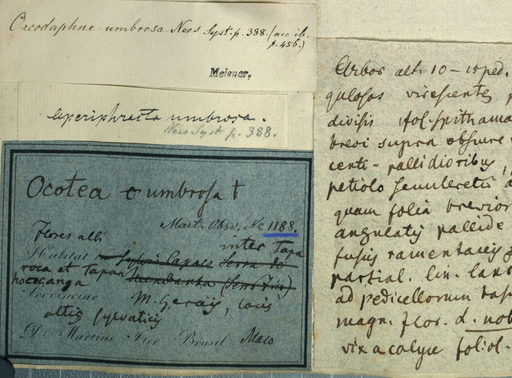 Oreodaphne umbrosa Nees Syst. p. 388 (nec ib.
p. 456.)
Meisner.
Aperiphracta umbrosa.
Nees Syst. p. 388.
Ocotea umbrosa †
Mart. Obs. Nc 1188.
Flores albi
inter Tapa
Habitat in Sylvis Capaes Serra de
roca et Tapan
hocanga
Provinciae M. Geraës, locis
altis sylvaticis
Dr. Martius Iter Brasil. Maio
Arbor alt. 10 – 15 ped.
gulosos virescentes
divisis fol. spithama
brevi supra obscure
cente-pallidioribus,
petiolo semitereti
quam folia brevior
angulatis pallide
fusis ramentaceis
partial. lin. lanc
ad pedicellorum bas
magn. flor. d. nob
vix a calyce foliol.